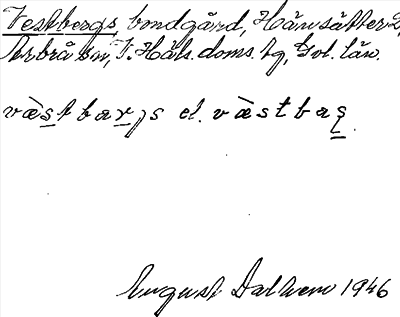 Vestbergs, bondgård, Hänsätter 2,
Arbrå sn, S. Häls. doms. tg, Gvl. län.
væ̀stbarjs el. væ̀stbaș
August Dalhem 1946